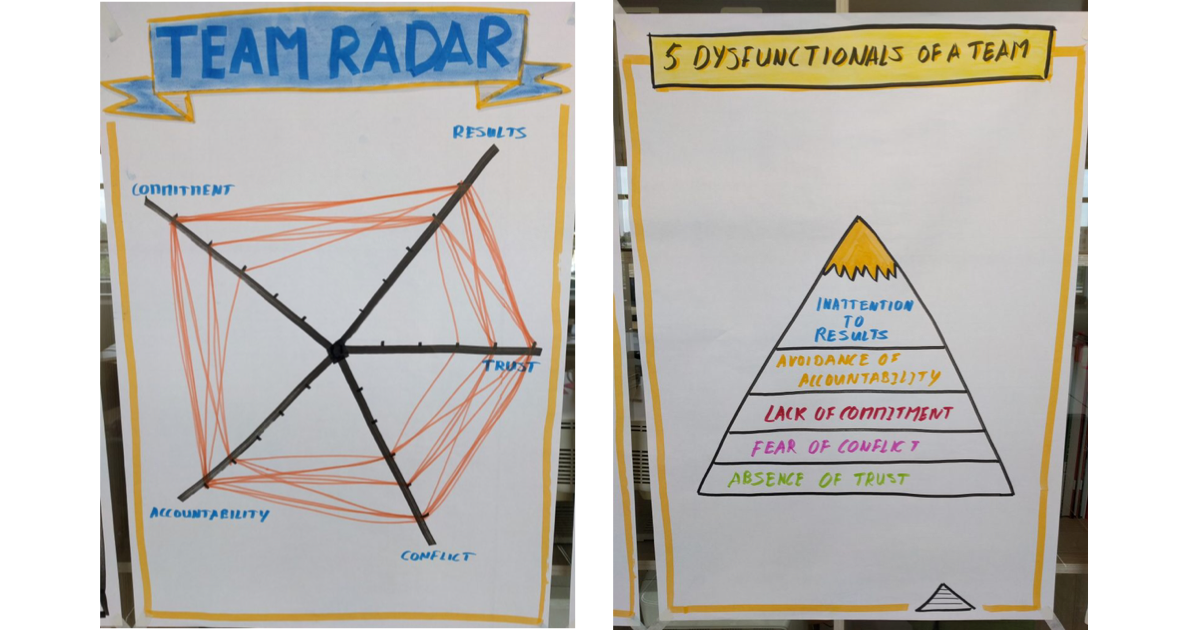 TEAM RADAR
RESULTS
COMMITMENT
TRUST
ACCOUNTABILITY
CONFLICT
5 DYSFUNCTIONALS OF A TEAM
INATTENTION
TO
RESULTS
AVOIDANCE OF
ACCOUNTABILITY
LACK OF COMMITMENT
FEAR OF CONFLICT
ABSENCE OF TRUST